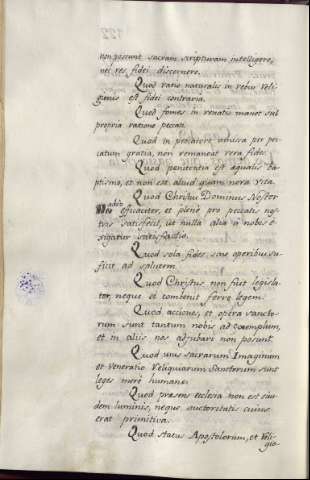 non possunt sacram scripturam intelligere,
vel res fidei discernere.
Quod ratio naturalis in rebus Reli-
gionis est fidei contraria.
Quod fomes in renatis manet sub
propria ratione peccati.
Quod in peccatore amissa per pec-
catum gratia, non remaneat vera fides.
Quod penitentia est equalis Ba-
ptismo, et non est aliud quam nova vita.
Quod Christus Dominus Noster
adeo efficaciter, et plenè pro peccatis nos-
tris satisfecit, ut nulla alia à nobis e-
xigatur satisfactio.
Quod sola fides, sine operibus su-
fficit ad salutem.
Quod Christus non fuit legisla-
tor, neque ei convenit ferre legem.
Quod acciones, et opera sancto-
rum sunt tantum nobis ad exemplum,
et in aliis nos adjubare non possunt.
Quod usus sacrarum Imaginum
et veneratio Reliquiarum Sanctorum sunt
leges merè humane.
Quod presens ecclesia non est eius-
dem luminis, neque auctoritatis cuius
erat primitiva.
Quod status Apostolorum, et Reli-
gio-